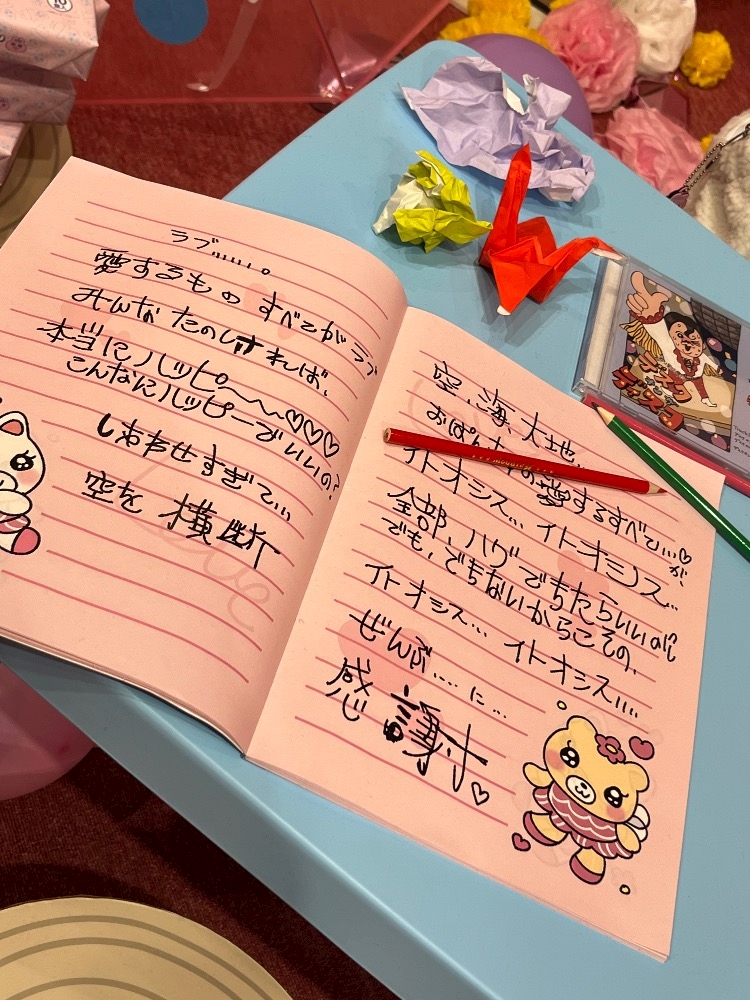 ラブ……。
愛するもの すべてがラブ
みんな たのしければ、
本当に ハッピ〜〜♡♡♡
こんなにハッピーでいいの?
しあわせすぎて…
空を 横断
空、海、大地、
おぱん の愛するすべて…♡
イトオシス… イトオシス…が、
全部、ハグできたらいいのに
でも、できないからこその、
イトオシス… イトオシス….
ぜんぶ…. に…
感謝♡